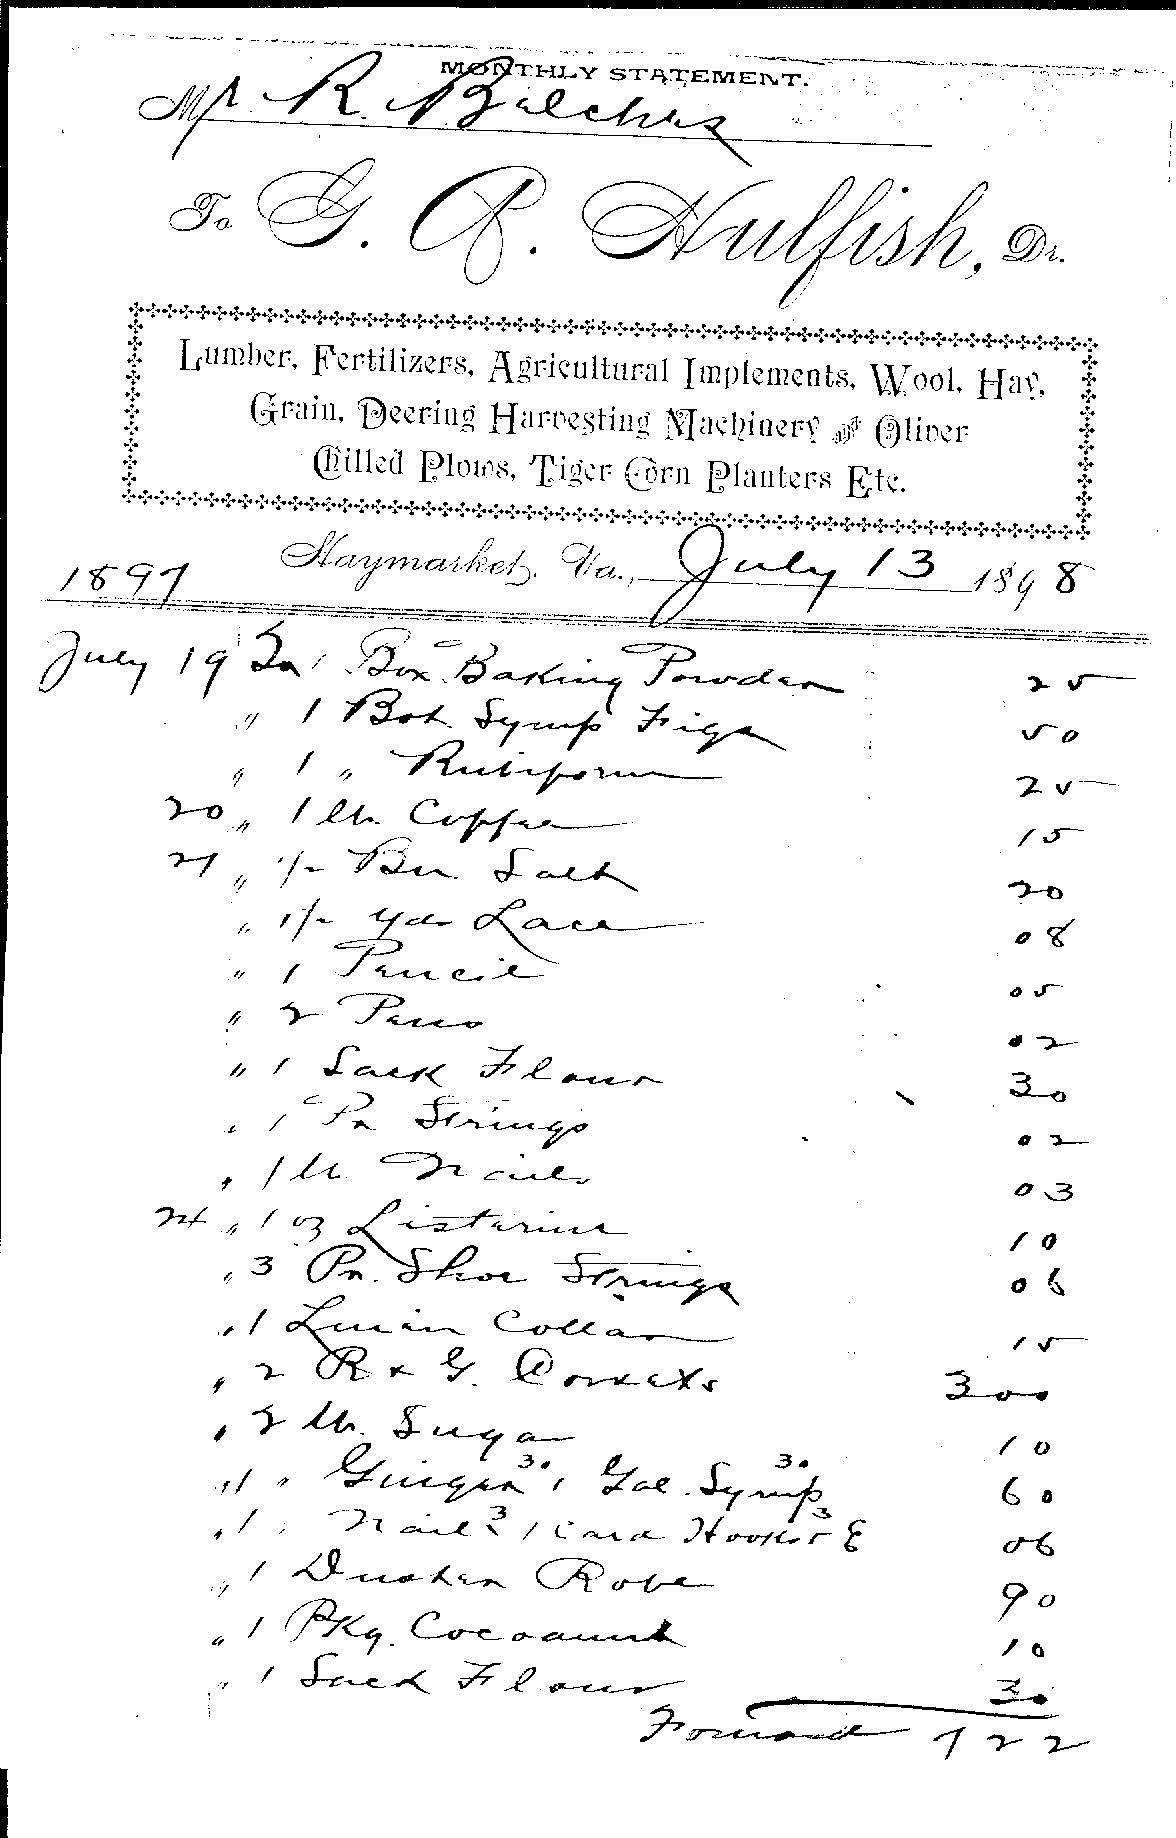 MONTHLY STATEMENT.
Mr R. Belches
To G. A. Hulfish, Dr.
Lumber, Fertilizers, Agricultural Implements, Wool, Hay,
Grain, Deering Harvesting Machinery and Oliver
Chilled Plows, Tiger Corn Planters Etc.
Haymarket, Va., July 13 1898
1897
July 19 To 1 Box Baking Powder 25
" 1 Bot Syrup Figs 50
" 1 " Rubiform 25
20 " 1 lb. Coffee 15
21 " 1/2 Bu. Salt 20
" 1/2 yds Lace 08
" 1 Pencil 05
" 2 Pens 02
" 1 Sack Flour 30
" 1 Pr Strings 02
" 1 lb Nails 03
24 " 1 oz Listerine 10
" 3 Pr. Shoe Strings 06
" 1 Linen Collar 15
" 2 R & G. Corsets 3 00
" 2 lb. Sugar 10
" 1 " Ginger 30 1 Gal. Syrup 30 60
" 1 " Nails 3 1 Card Hooks & E 3 06
" 1 Duster Robe 90
" 1 Pkg. Cocoanut 10
" 1 Sack Flour 30
Forward 7 22